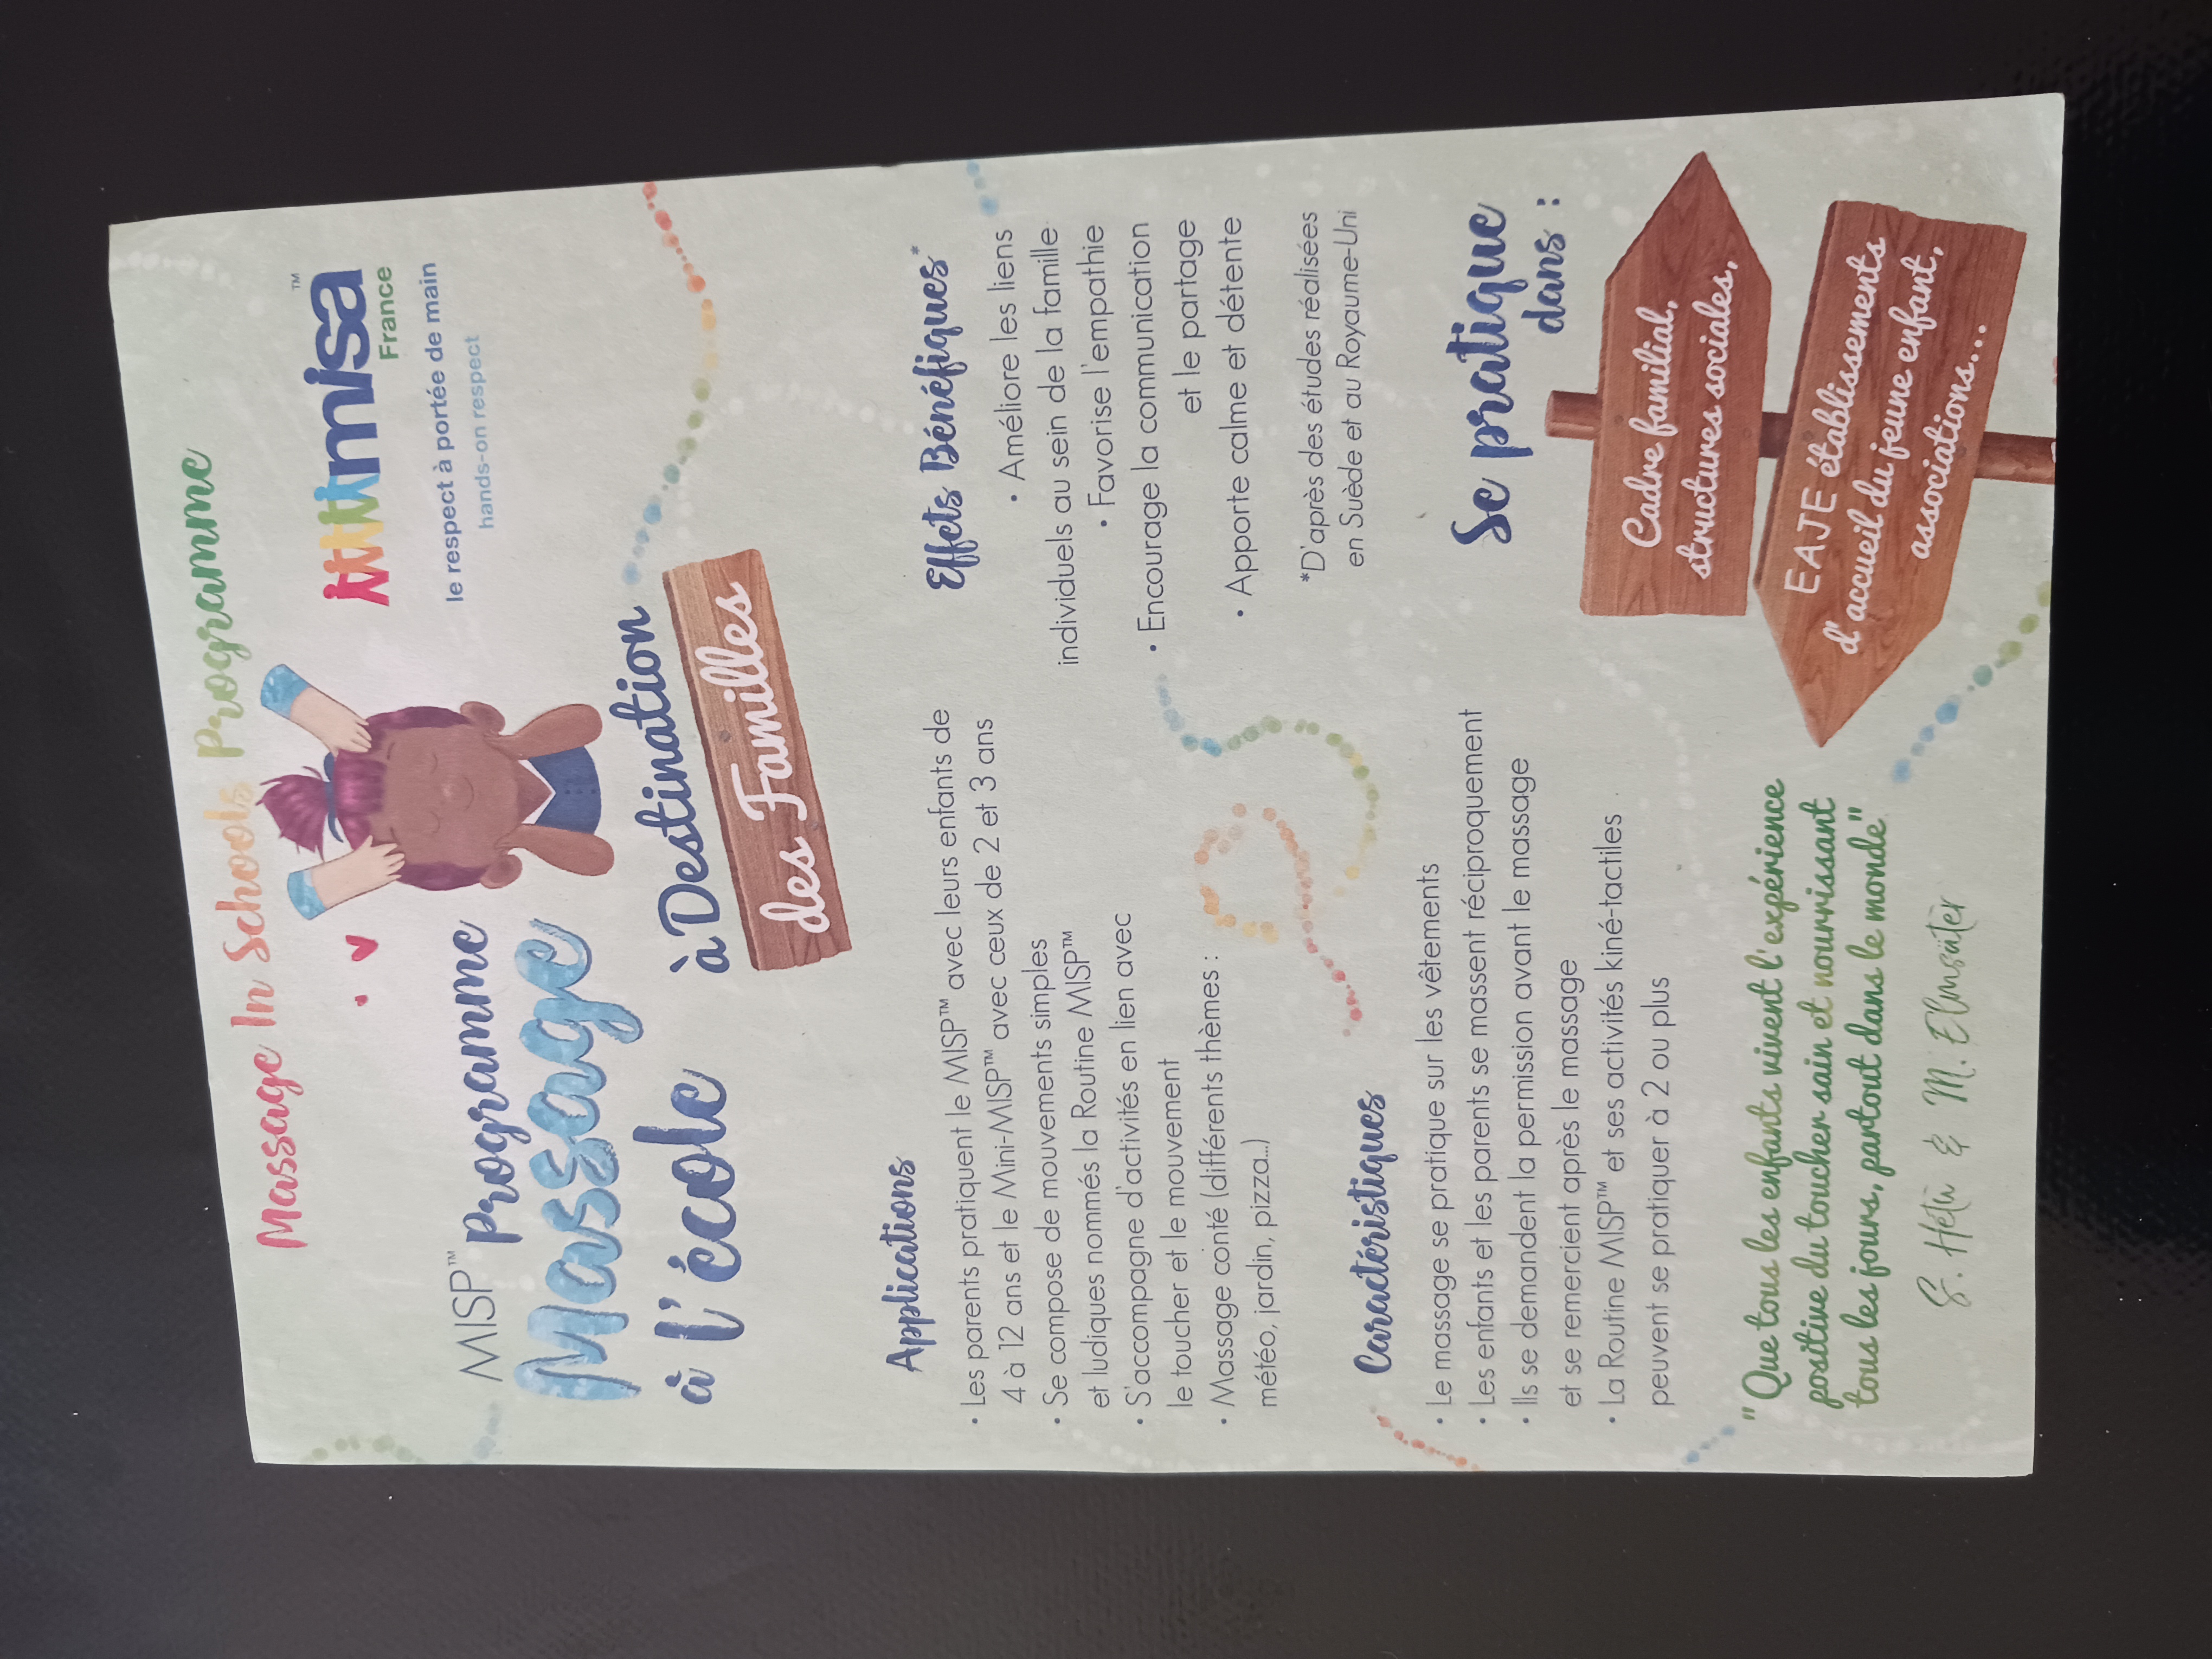 Massage In Schools Programme
misa™
France
le respect à portée de main
hands-on respect
MISP™ programme
Massage
à l'école
à Destination
des Familles
Applications
• Les parents pratiquent le MISP™ avec leurs enfants de
4 à 12 ans et le Mini-MISP™ avec ceux de 2 et 3 ans
• Se compose de mouvements simples
et ludiques nommés la Routine MISP™
• S'accompagne d'activités en lien avec
le toucher et le mouvement
• Massage conté (différents thèmes :
météo, jardin, pizza...)
Effets Bénéfiques*
• Améliore les liens
individuels au sein de la famille
• Favorise l'empathie
• Encourage la communication
et le partage
• Apporte calme et détente
*D'après des études réalisées
en Suède et au Royaume-Uni
Caractéristiques
• Le massage se pratique sur les vêtements
• Les enfants et les parents se massent réciproquement
• Ils se demandent la permission avant le massage
et se remercient après le massage
• La Routine MISP™ et ses activités kiné-tactiles
peuvent se pratiquer à 2 ou plus
Se pratique
dans :
Cadre familial,
structures sociales,
EAJE établissements
d'accueil du jeune enfant,
associations...
"Que tous les enfants vivent l'expérience
positive du toucher sain et nourrissant
tous les jours, partout dans le monde"
S. Hétu & M. Elmsäter